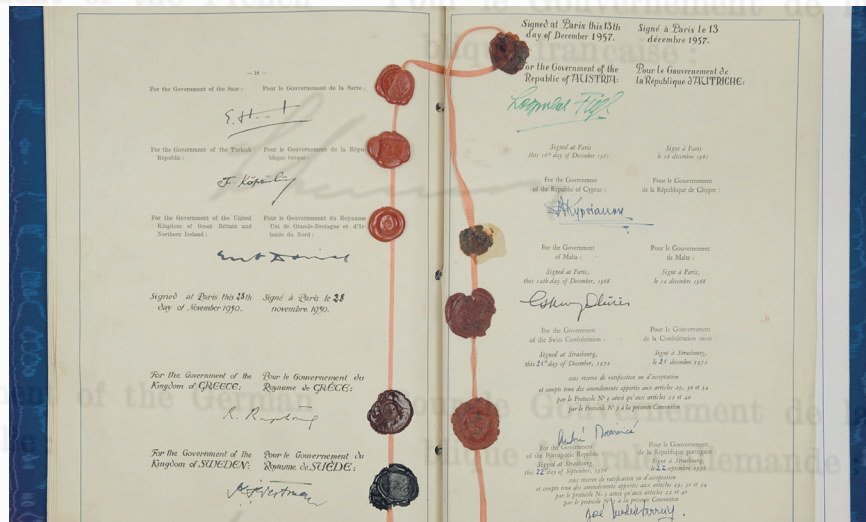 — 18 —
For the Government of the Saar:
Pour le Gouvernement de la Sarre:
For the Government of the Turkish
Republic:
Pour le Gouvernement de la Répu-
blique turque:
For the Government of the United
Kingdom of Great Britain and
Northern Ireland:
Pour le Gouvernement du Royaume
Uni de Grande-Bretagne et d'Ir-
lande du Nord:
Signed at Paris this 28th
day of November 1950.
Signé à Paris le 28
novembre 1950.
For the Government of the
Kingdom of GREECE:
Pour le Gouvernement du
Royaume de GRÈCE:
For the Government of the
Kingdom of SWEDEN:
Pour le Gouvernement du
Royaume de SUÈDE:
Signed at Paris this 13th
day of December 1957.
Signé à Paris le 13
décembre 1957.
For the Government of the
Republic of AUSTRIA:
Pour le Gouvernement de
la République d'AUTRICHE:
Leopold Figl
Signed at Paris
this 16th day of December 1961
Signé à Paris
le 16 décembre 1961
For the Government
of the Republic of Cyprus:
Pour le Gouvernement
de la République de Chypre:
Kyprianou
For the Government
of Malta:
Pour le Gouvernement
de Malte:
Signed at Paris,
this 12th day of December, 1966
Signé à Paris,
le 12 décembre 1966
For the Government
of the Swiss Confederation:
Pour le Gouvernement
de la Confédération suisse:
Signed at Strasbourg,
this 21st day of December, 1972
Signé à Strasbourg,
le 21 décembre 1972
sous réserve de ratification ou d'acceptation
et compte tenu des amendements apportés aux articles 29, 30 et 34
par le Protocole N° 3 ainsi qu'aux articles 22 et 40
par le Protocole N° 5 à la présente Convention
For the Government
of the Portuguese Republic
Pour le Gouvernement
de la République portugaise
Signed at Strasbourg,
this 22nd day of September, 1976
Signé à Strasbourg,
le 22 septembre 1976
sous réserve de ratification ou d'acceptation
et compte tenu des amendements apportés aux articles 29, 30 et 34
par le Protocole N° 3 ainsi qu'aux articles 22 et 40
par le Protocole N° 5 à la présente Convention